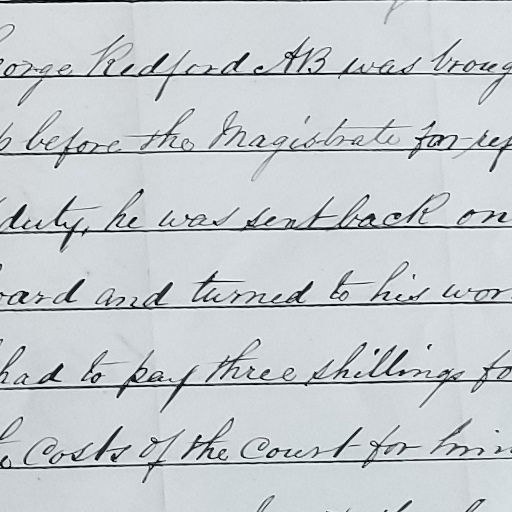 eorge Redford AB was broug
p before the Magistrate for ref
duty, he was sent back on
oard and turned to his wor
had to pay three shillings fo
he costs of the Court for him